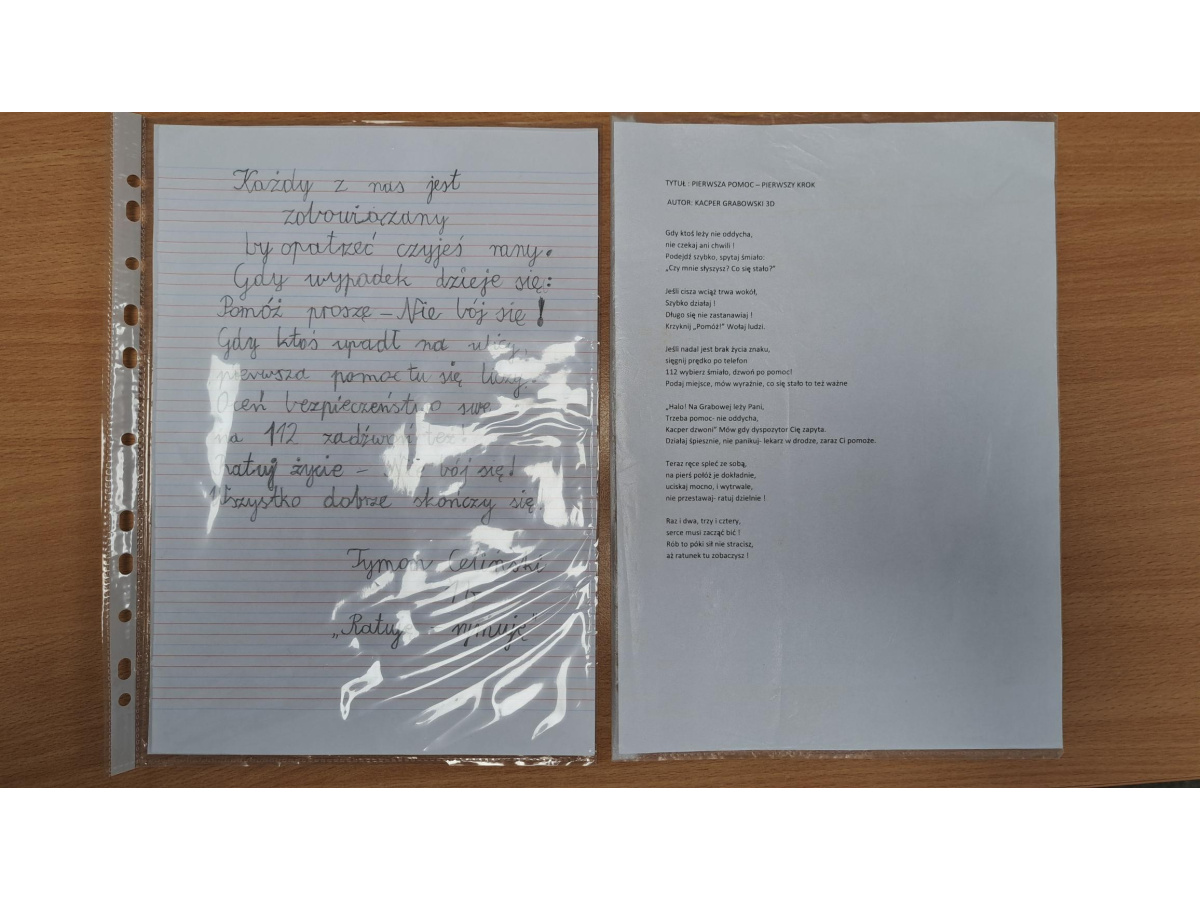 Każdy z nas jest
zobowiązany
by opatrzeć czyjeś rany.
Gdy wypadek dzieje się:
Pomóż proszę – Nie bój się!
Gdy ktoś upadł na ulicy,
pierwsza pomoc tu się liczy.
Oceń bezpieczeństwo swe
na 112 zadzwoń też!
Ratuj życie – Nie bój się!
Wszystko dobrze skończy się
Tymon
TYTUŁ : PIERWSZA POMOC – PIERWSZY KROK
AUTOR: KACPER GRABOWSKI 3D
Gdy ktoś leży nie oddycha,
nie czekaj ani chwili !
Podejdź szybko, spytaj śmiało:
„Czy mnie słyszysz? Co się stało?"
Jeśli cisza wciąż trwa wokół,
Szybko działaj !
Długo się nie zastanawiaj !
Krzyknij „Pomóż!" Wołaj ludzi.
Jeśli nadal jest brak życia znaku,
sięgnij prędko po telefon
112 wybierz śmiało, dzwoń po pomoc!
Podaj miejsce, mów wyraźnie, co się stało to też ważne
„Halo! Na Grabowej leży Pani,
Trzeba pomoc- nie oddycha,
Kacper dzwoni" Mów gdy dyspozytor Cię zapyta.
Działaj śpiesznie, nie panikuj- lekarz w drodze, zaraz Ci pomoże.
Teraz ręce spleć ze sobą,
na pierś połóż je dokładnie,
uciskaj mocno, i wytrwale,
nie przestawaj- ratuj dzielnie !
Raz i dwa, trzy i cztery,
serce musi zacząć bić !
Rób to póki sił nie stracisz,
aż ratunek tu zobaczysz !